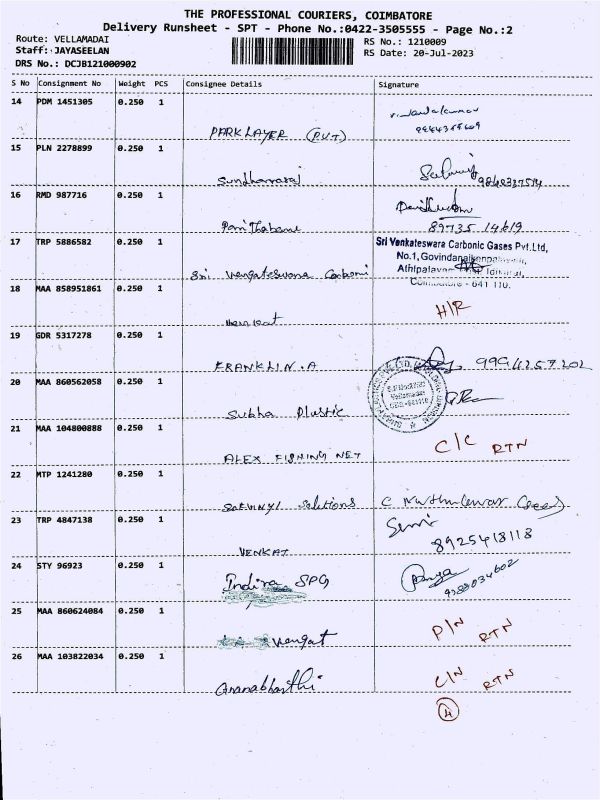 THE PROFESSIONAL COURIERS, COIMBATORE
Delivery Runsheet - SPT - Phone No.:0422-3505555 - Page No.:2
Route: VELLAMADAI
RS No.: 1210009
Staff: JAYASEELAN
RS Date: 20-Jul-2023
DRS No.: DCJB121000902
S No Consignment No Weight PCS Consignee Details Signature
14 PDM 1451305 0.250 1
PARK LAYER (PVT)
15 PLN 2278899 0.250 1
Sundharraraj
16 RMD 987716 0.250 1
89735 14619
17 TRP 5886582 0.250 1
Sri Venkateswara Carbonic Gases Pvt.Ltd,
No.1, Govindanaikenpalayam,
Sri Vengateswara Carboni
18 MAA 858951861 0.250 1
H/R
19 GDR 5317278 0.250 1
FRANKLIN.A 9994257202
20 MAA 860562058 0.250 1
Subha Plustic
21 MAA 104800888 0.250 1
C/C RTN
ALEX FISHING NET
22 MTP 1241280 0.250 1
Solutions
23 TRP 4847138 0.250 1
8925418118
VENKAT
24 STY 96923 0.250 1
Indira SPG
25 MAA 860624084 0.250 1
P/N RTN
Vengat
26 MAA 103822034 0.250 1
C/N RTN
Gnanabharthi
4